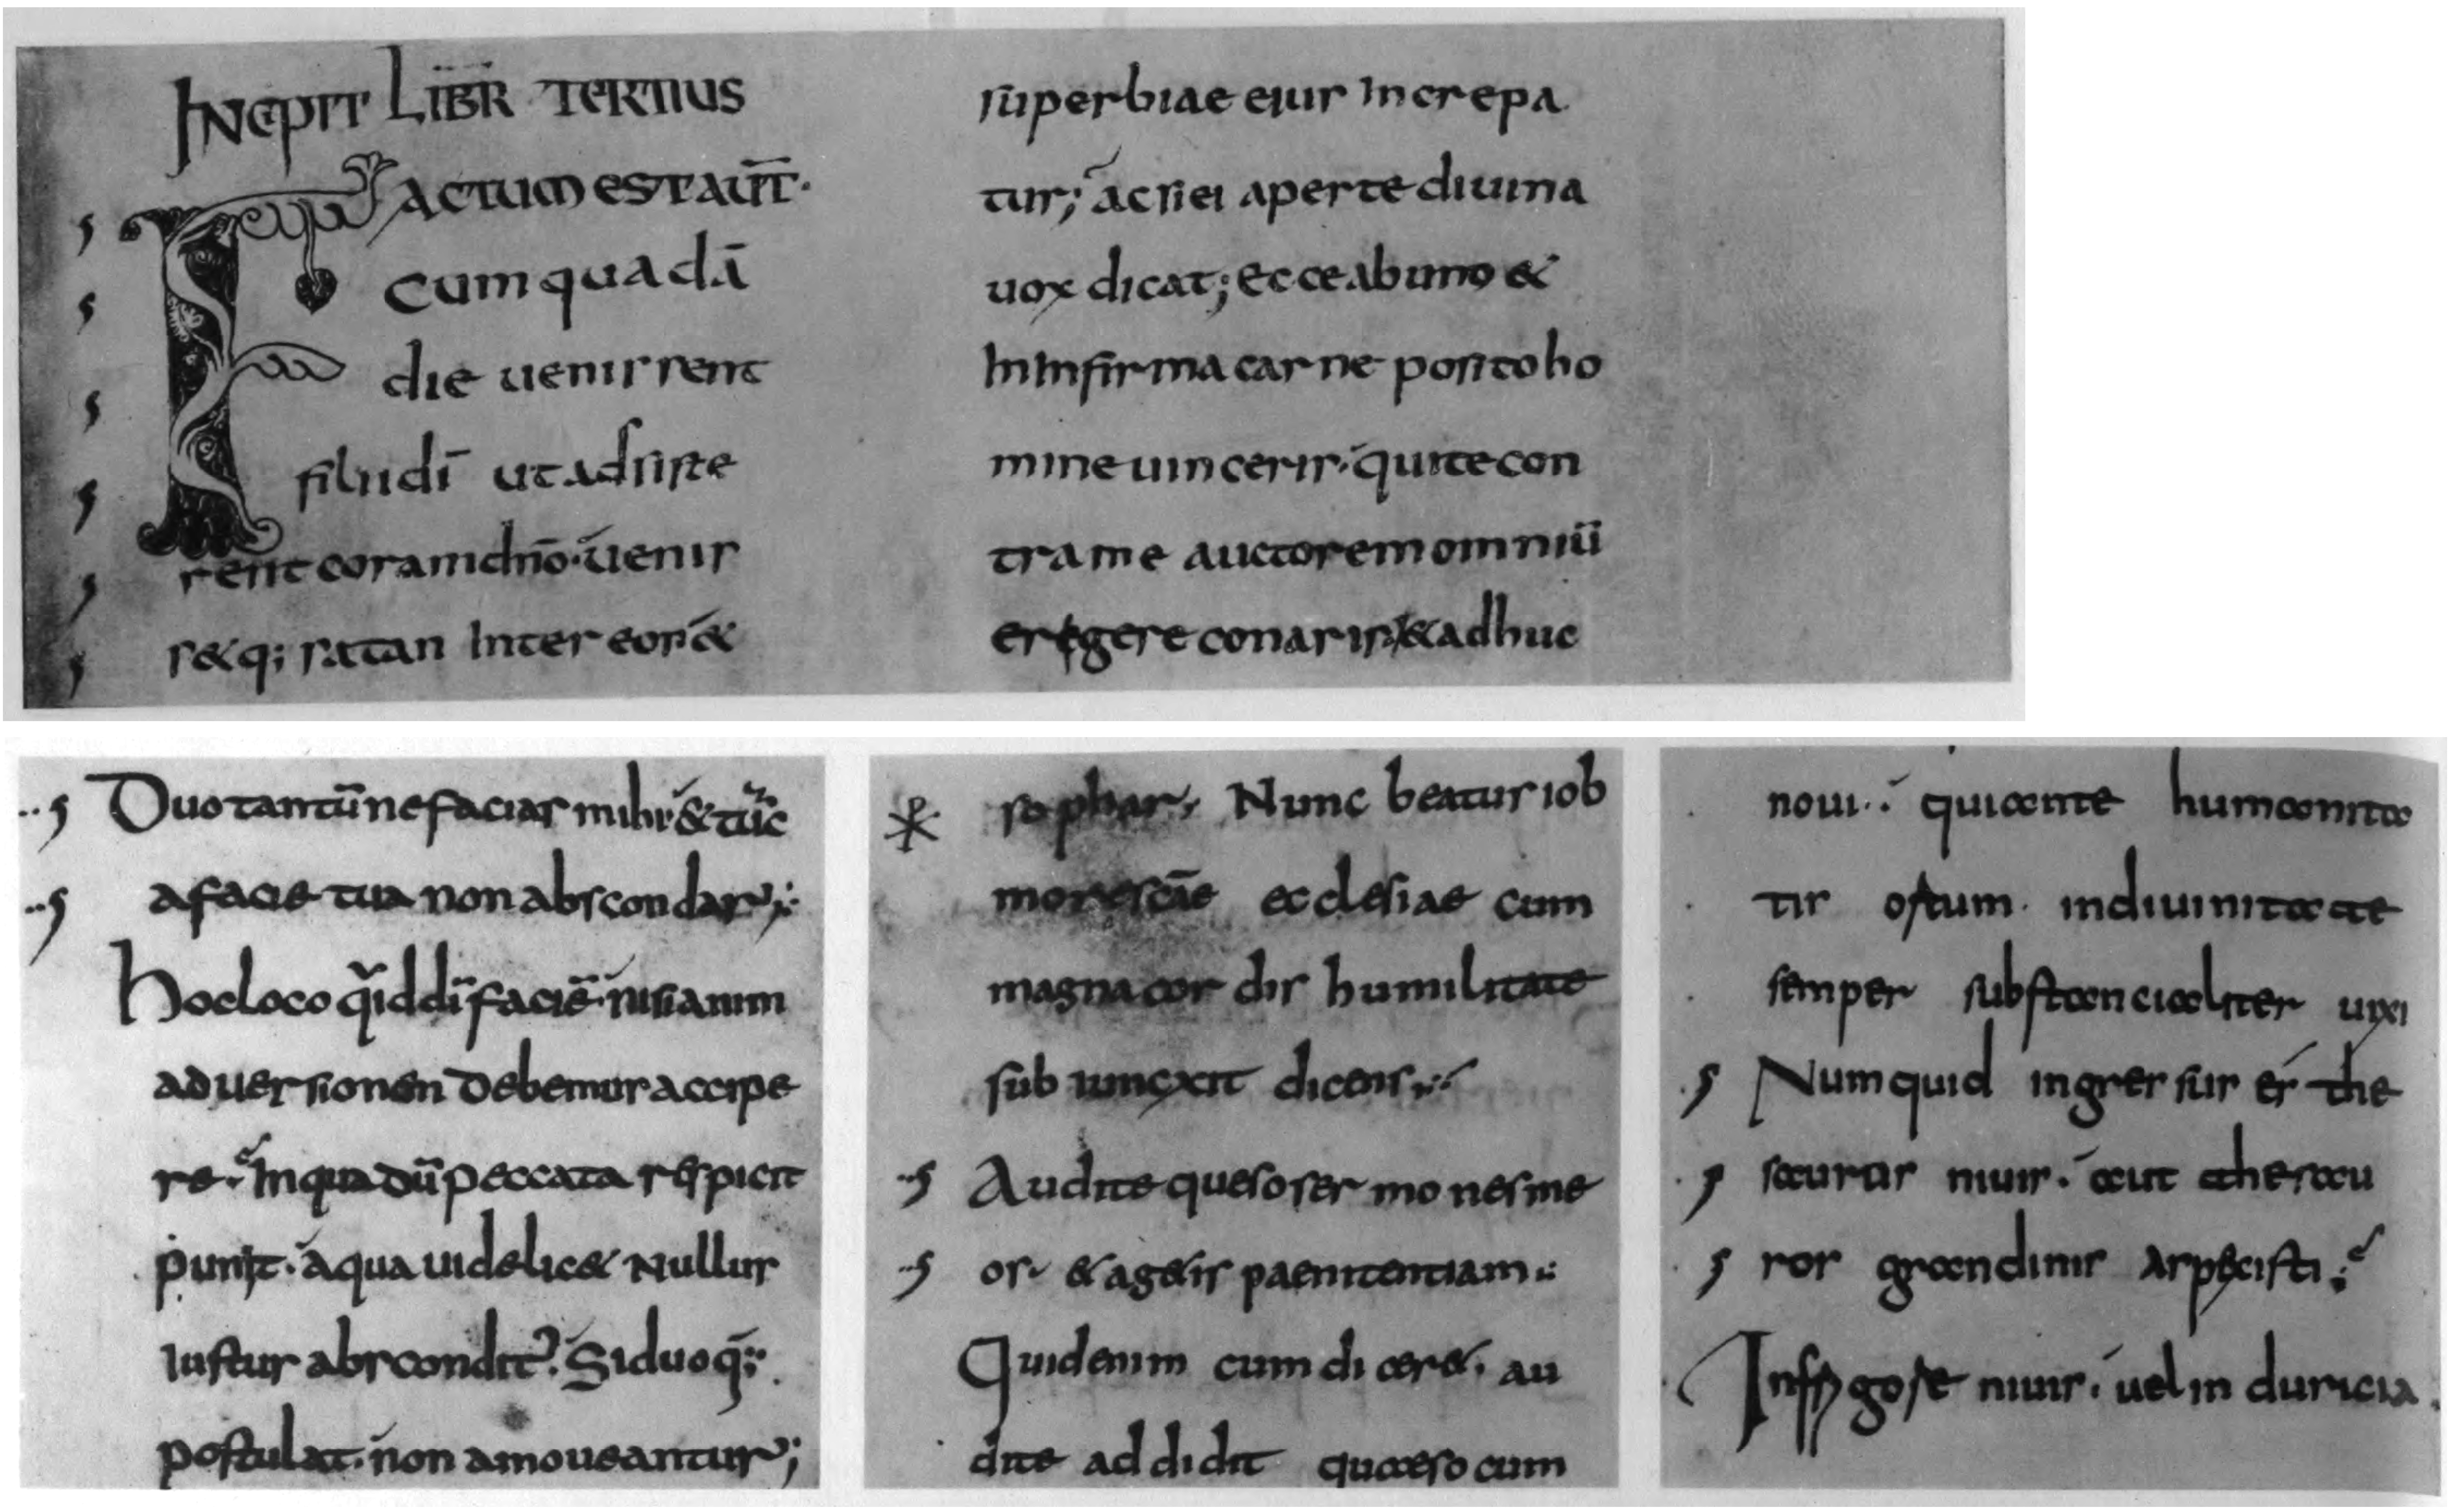 INCPIT LIBR TERTIUS
FACTUM EST AUT̄·
cum quadā
die uenissent
filii dī ut adsiste
rent coram dn̄o· uenis
s&q; satan Inter eos· &
superbiae eius Increpa
tur; ac si ei aperte diuina
uox dicat; Ecce ab uno &
In Infirma carne posito ho
mine uinceris· qui te con
tra me auctorem omniū
eregere conaris· & adhuc
Duo tantū ne facias mihi· & tūc
a facie tua non abscondar;
Hoc loco q̄d dī faciē· nisi anim
aduersionen debemur accipe
re· In qua dū peccata respicit
punit· a qua uidelic& Nullus
Iustus abscondit· Si duo q̄;
postulat· non amoueantur;
sophar, Nunc beatus iob
mores scāe ecclesiae cum
magna cordis humilitate
subiuncxit dicens;
Audite queso sermones me
os· & ag&is paenitentiam·
Qui denim cum dicer&· au
dite addidit quaeso cum
noui· qui ante humanita
tis ostum· in diuinitate
semper substancialiter uixi
Numquid ingressus es the
sauras niuis· aut thesau
ros grandinis aspexisti
In frigore niuis· uel in duricia